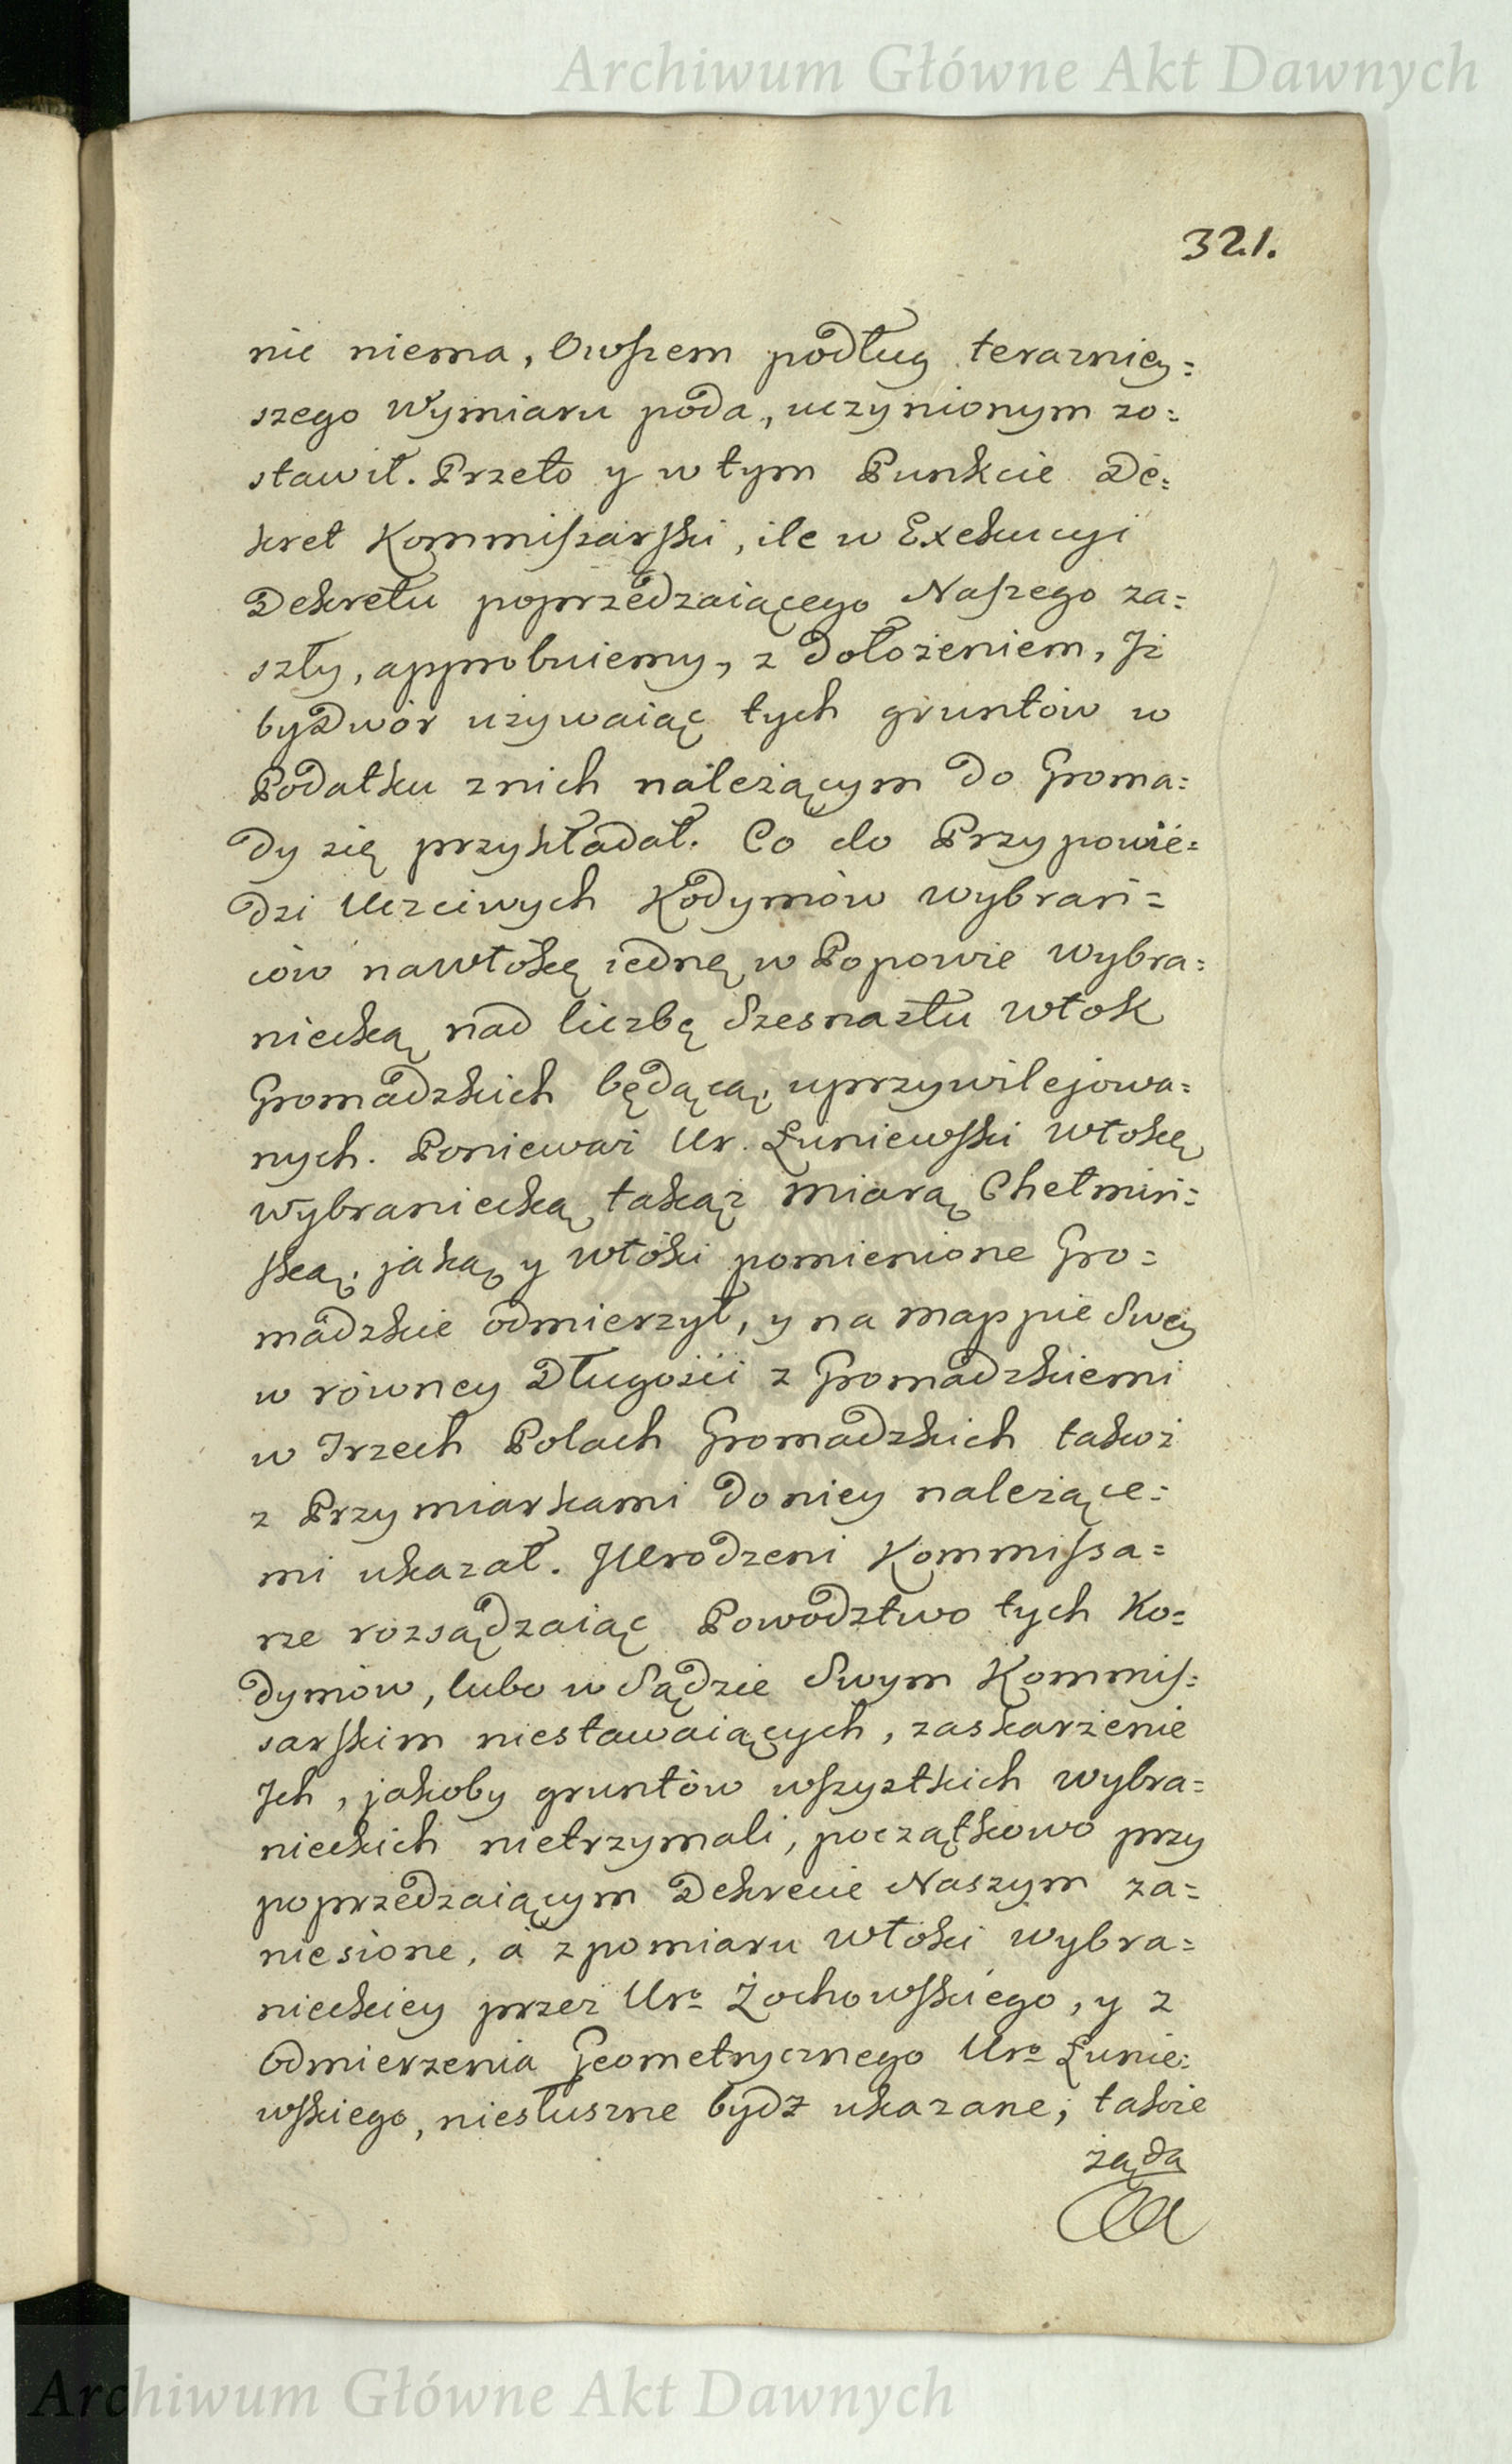 Archiwum Główne Akt Dawnych
321.
nie niema, Owszem podług terazniey=
szego Wymiaru poda, uczynionym zo=
stawił. Przeto y w tym Punkcie De=
kret Kommissarski, ile w Exekucyi
Dekretu poprzedzaiącego Naszego za=
szły, approbuiemy, z dołożeniem, Iż
by Dwór używaiąc tych gruntów w
Podatku z nich należącym do Groma=
dy się przykładał. Co do Przypowie=
dzi Uczciwych Kodymów wybrań=
ców na włókę iednę w Popowie Wybra=
niecką nad liczbę Szesnastu Włok
Gromadzkich będącą, uprzywilejowa=
nych. Ponieważ Ur. Łuniewski Włokę
Wybraniecką, takąż miarą Chełmiń=
ską, jaką y włóki pomienione Gro=
madzkie odmierzył, y na mappie Swey
w równey Długości z Gromadzkiemi
w Trzech Polach Gromadzkich takoż
z Przymiarkami do niey należące=
mi ukazał. Urodzeni Kommissa=
rze rozsądzaiąc Powodztwo tych Ko=
dymów, lubo w Sądzie Swym Kommis=
sarskim niestawaiących, zaskarżenie
Ich, jakoby gruntów wszystkich wybra=
nieckich nietrzymali, początkowo przy
poprzedzaiącym Dekrecie Naszym za=
niesione, a z pomiaru Włoki Wybra=
nieckiey przez Uro Żochowskiego, y z
Odmierzenia Geometrycznego Uro Łunie=
wskiego, niesłuszne bydz ukazane; takoie
żąda
Archiwum Główne Akt Dawnych